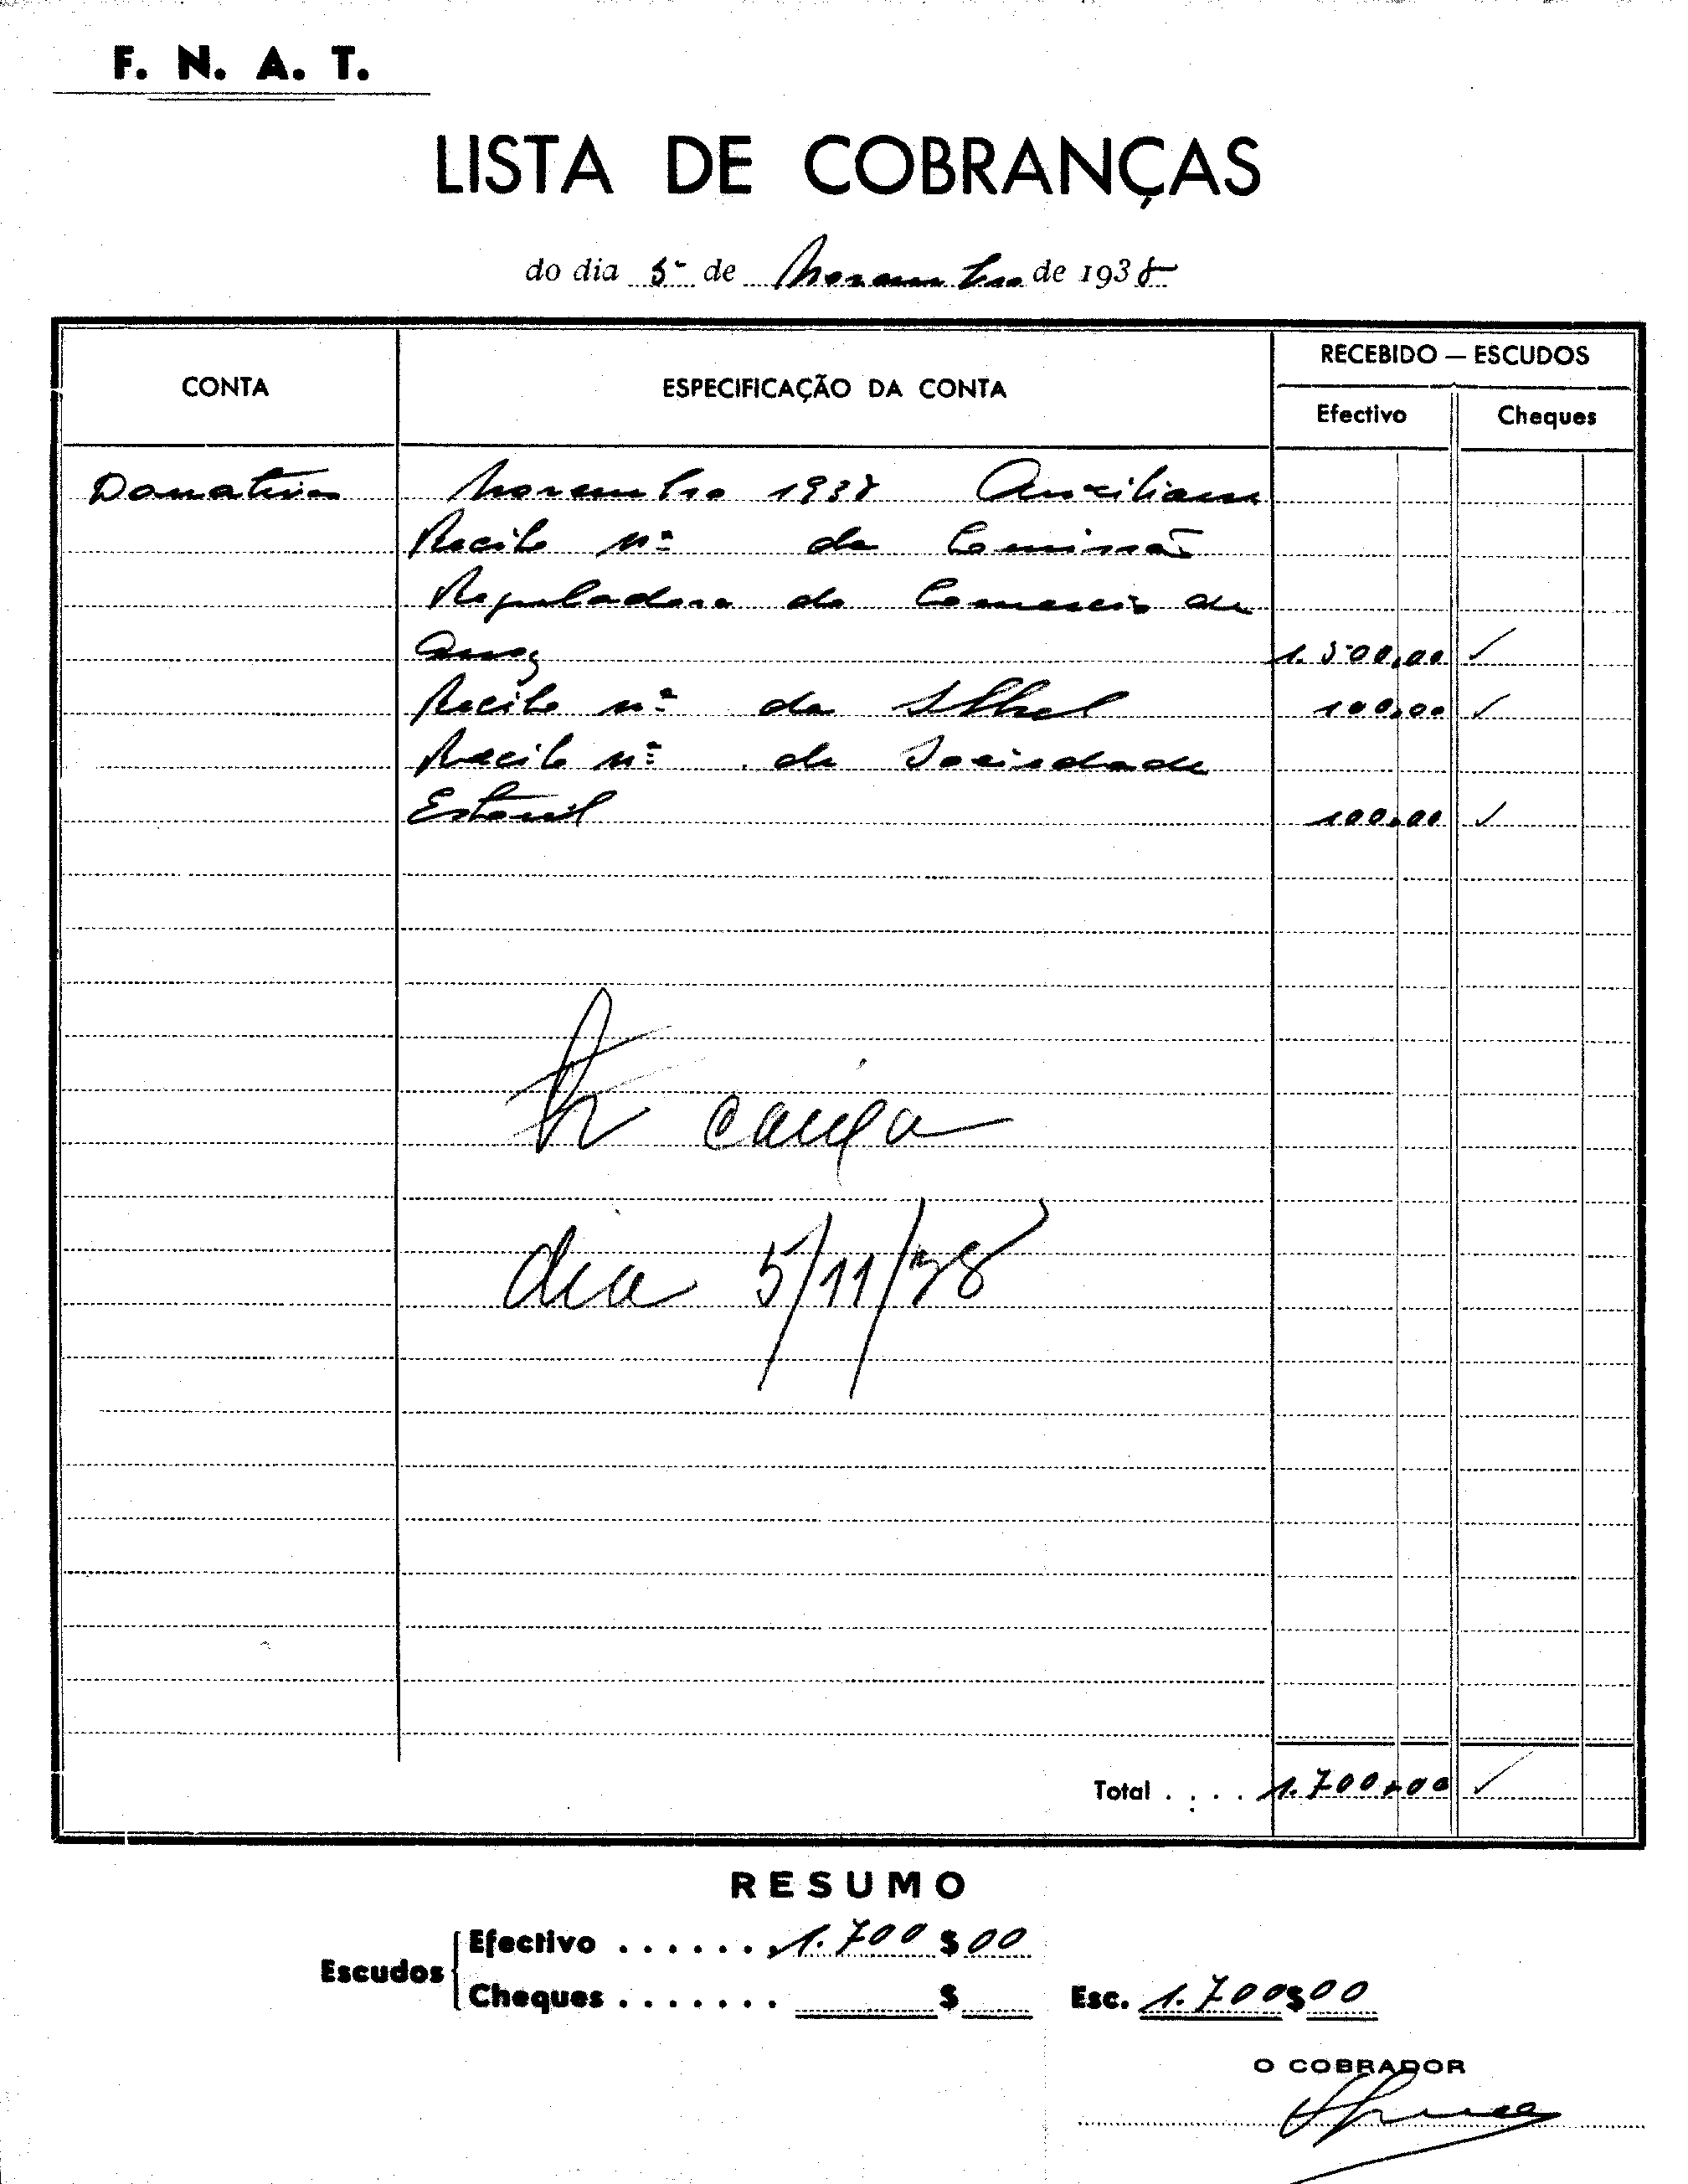 F. N. A. T.
LISTA DE COBRANÇAS
do dia 5 de Novembro de 1938
CONTA ESPECIFICAÇÃO DA CONTA RECEBIDO — ESCUDOS
Efectivo Cheques
Donativos Novembro 1938
Recibo nº da Comissão
Reguladora do Comercio de
Arroz 1.500,00
Recibo nº da Shel 100,00
Recibo nº da Sociedade
Estoril 100,00
caixa
dia 5/11/38
Total . . . . 1.700,00
RESUMO
Escudos
Efectivo . . . . . . . 1.700 $ 00
Cheques . . . . . . . $ Esc. 1.700 $ 00
O COBRADOR